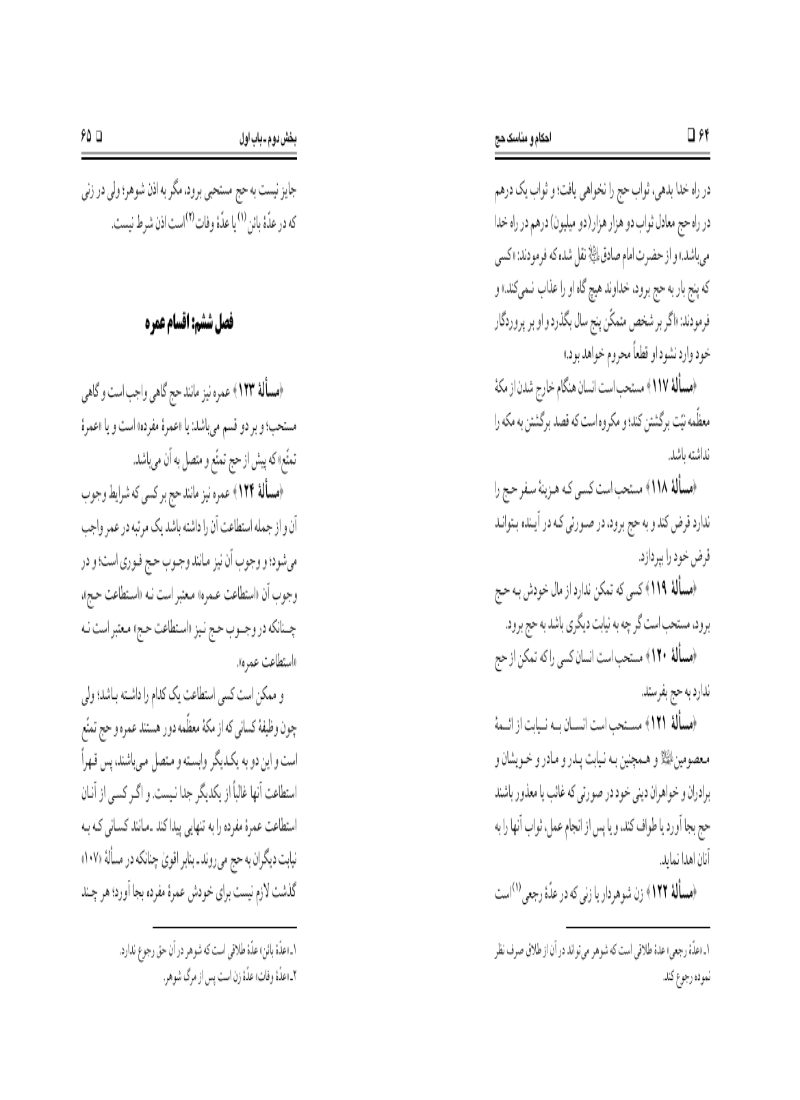 ۶۴ □ احکام و مناسک حج
در راه خدا بدهی، ثواب حج را نخواهی یافت؛ و ثواب یک درهم
در راه حج معادل ثواب دو هزار هزار (دو میلیون) درهم در راه خدا
می‌باشد.» و از حضرت امام صادق نقل شده که فرمودند: «کسی
که پنج بار به حج برود، خداوند هیچ گاه او را عذاب نـمی‌کند.» و
فرمودند: «اگر بر شخص متمکّن پنج سال بگذرد و او بر پروردگار
خود وارد نشود او قطعاً محروم خواهد بود.»
﴿مسألۀ ۱۱۷﴾ مستحب است انسان هنگام خارج شدن از مکۀ
معظّمه نیّت برگشتن کند؛ و مکروه است که قصد برگشتن به مکه را
نداشته باشد.
﴿مسألۀ ۱۱۸﴾ مستحب است کسـی کـه هـزینۀ سـفر حـج را
ندارد قرض کند و به حج برود، در صورتی کـه در آیـنده بـتوانـد
قرض خود را بپردازد.
﴿مسألۀ ۱۱۹﴾ کسی که تمکن ندارد از مال خودش بـه حـج
برود، مستحب است گر چه به نیابت دیگری باشد به حج برود.
﴿مسألۀ ۱۲۰﴾ مستحب است انسان کسی را که تمکن از حج
ندارد به حج بفرستد.
﴿مسألۀ ۱۲۱﴾ مسـتحب است انسـان بـه نـیابت از ائـمۀ
مـعصومین و هـمچنین بـه نـیابت پـدر و مـادر و خـویشان و
برادران و خواهران دینی خود در صورتی که غائب یا معذور باشند
حج بجا آورد یا طواف کند، و یا پس از انجام عمل، ثواب آنها را به
آنان اهدا نماید.
﴿مسألۀ ۱۲۲﴾ زن شوهردار یا زنی که در عدّۀ رجعی(۱) است
۱ـ «عدّۀ رجعی» عدۀ طلاقی است که شوهر می‌تواند در آن از طلاق صرف نظر
نموده رجوع کند.
بخش دوم ـ باب اول □ ۶۵
جایز نیست به حج مستحبی برود، مگر به اذن شوهر؛ ولی در زنی
که در عدّۀ بائن(۱) یا عدّۀ وفات(۲) است اذن شرط نیست.
فصل ششم: اقسام عمره
﴿مسألۀ ۱۲۳﴾ عمره نیز مانند حج گاهی واجب است و گاهی
مستحب؛ و بر دو قسم می‌باشد: یا «عمرۀ مفرده» است و یا «عمرۀ
تمتّع» که پیش از حج تمتّع و متصل به آن می‌باشد.
﴿مسألۀ ۱۲۴﴾ عمره نیز مانند حج بر کسی که شرایط وجوب
آن و از جمله استطاعت آن را داشته باشد یک مرتبه در عمر واجب
می‌شود؛ و وجوب آن نیز مـانند وجـوب حـج فـوری است؛ و در
وجوب آن «استطاعت عـمره» مـعتبر است نـه «اسـتطاعت حـج»،
چـنانکه در وجـوب حـج نـیز «اسـتطاعت حج» مـعتبر است نـه
«استطاعت عمره».
و ممکن است کسی استطاعت یک کدام را داشـته بـاشد؛ ولی
چون وظیفۀ کسانی که از مکۀ معظّمه دور هستند عمره و حج تمتّع
است و این دو به یکـدیگر وابسته و مـتصل مـی‌باشند، پس قـهراً
استطاعت آنها غالباً از یکدیگر جدا نـیست. و اگـر کسـی از آنـان
استطاعت عمرۀ مفرده را به تنهایی پیدا کند ـ مـانند کسـانی کـه بـه
نیابت دیگران به حج می‌روند ـ بنابر اقویٰ چنانکه در مسألۀ «۱۰۷»
گذشت لازم نیست برای خودش عمرۀ مفرده بجا آورد؛ هر چـند
۱ـ «عدّۀ بائن» عدّۀ طلاقی است که شوهر در آن حق رجوع ندارد.
۲ـ «عدّۀ وفات» عدّۀ زن است پس از مرگ شوهر.